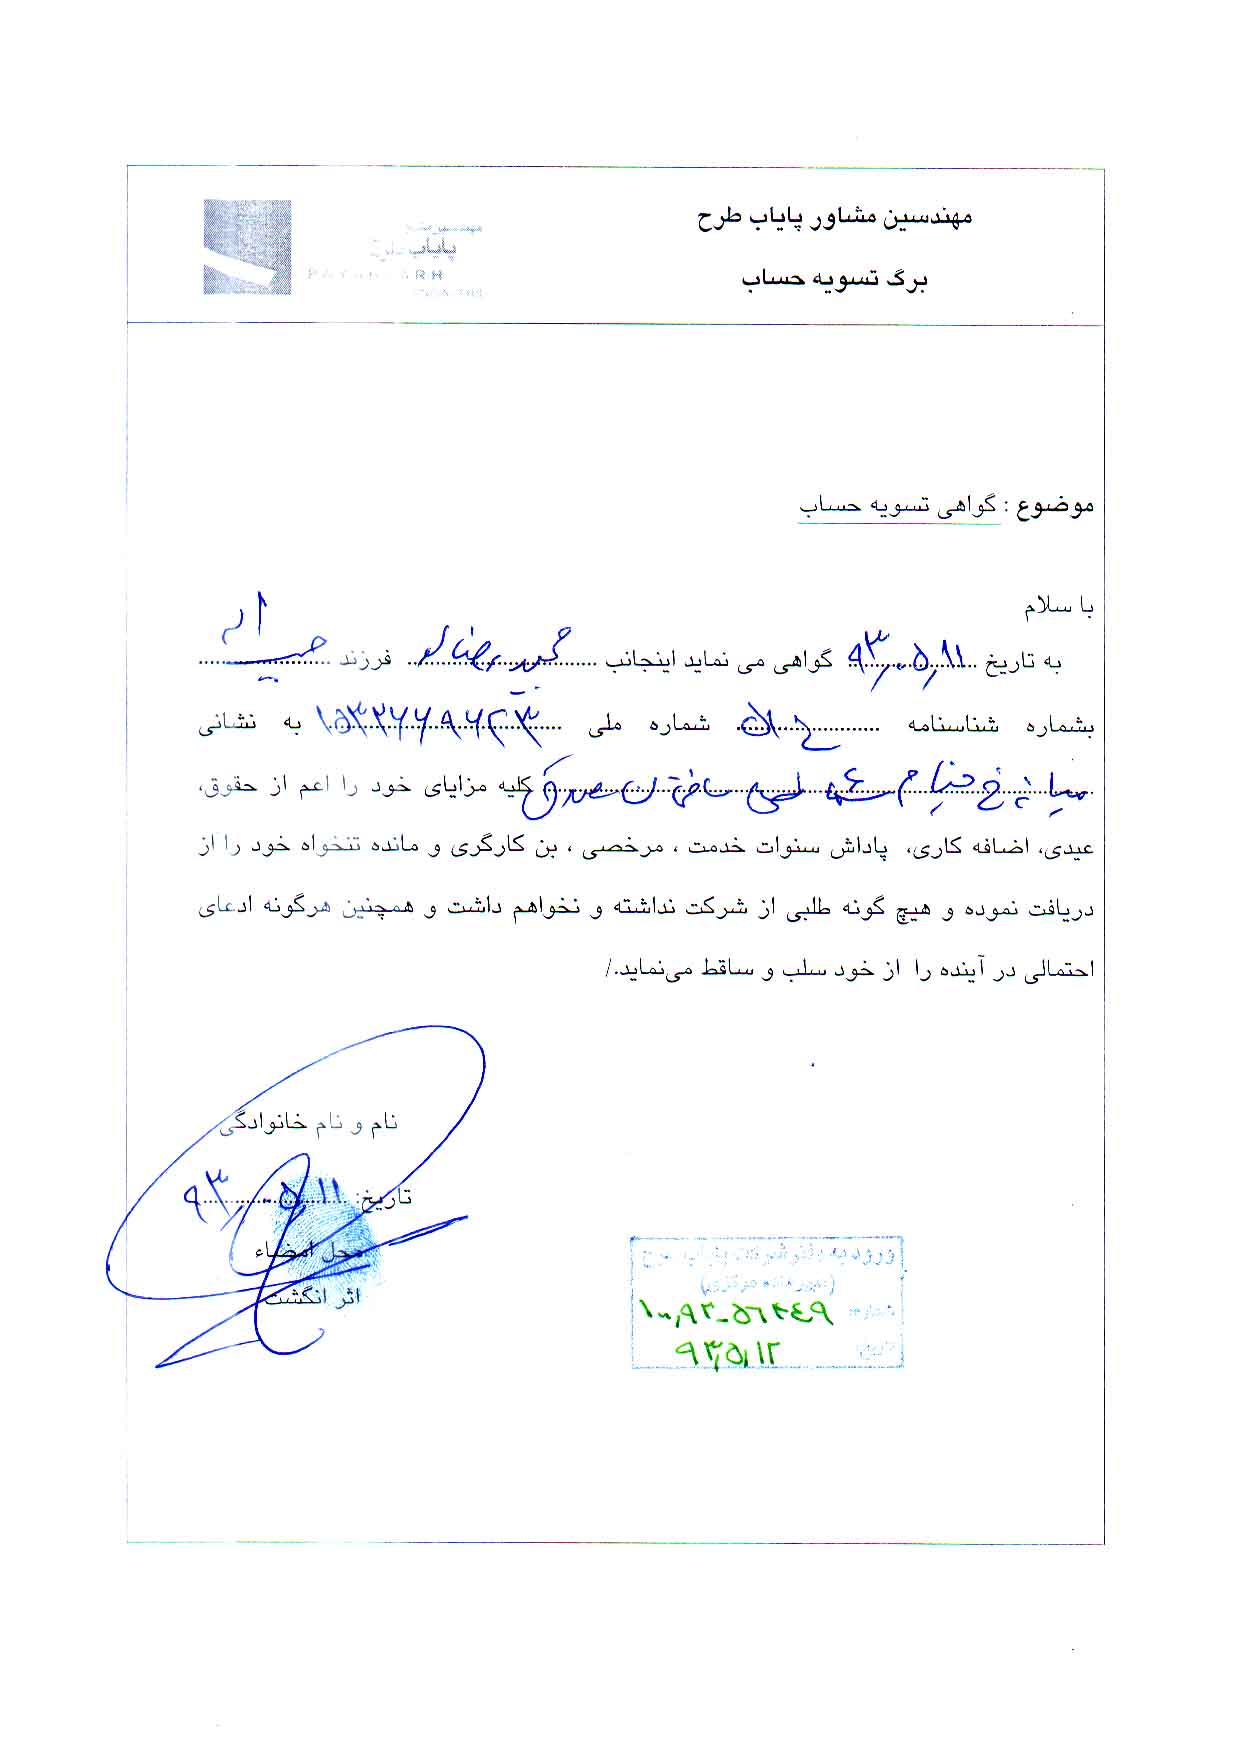 مهندسین مشاور پایاب طرح
برگ تسویه حساب
پایاب طرح
موضوع : گواهی تسویه حساب
با سلام
به تاریخ ۹۳،۰۵،۱۱ گواهی می نماید اینجانب فرزند
بشماره شناسنامه شماره ملی به نشانی
کلیه مزایای خود را اعم از حقوق،
عیدی، اضافه کاری، پاداش سنوات خدمت ، مرخصی ، بن کارگری و مانده تنخواه خود را از
دریافت نموده و هیچ گونه طلبی از شرکت نداشته و نخواهم داشت و همچنین هرگونه ادعای
احتمالی در آینده را از خود سلب و ساقط می‌نماید./
نام و نام خانوادگی
تاریخ: ۹۳،۰۵،۱۱
محل امضاء
اثر انگشت
ورود به دفتر شرکت پایاب طرح
(دبیرخانه مرکزی)
شماره:
تاریخ: ۹۳،۵،۱۲